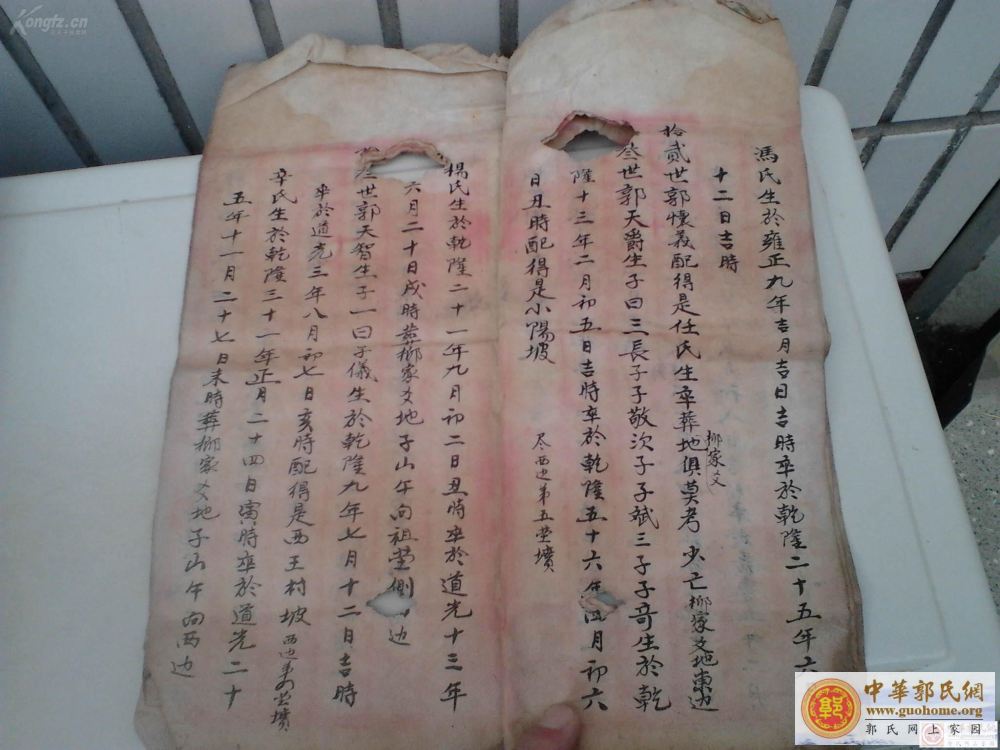 馮氏生於雍正九年吉月吉日吉時卒於乾隆二十五年六
十二日吉時
拾貳世郭懷義配得是任氏生卒葬地俱莫考 少亡柳家㕚地東边
柳家㕚
叁世郭天爵生子曰三長子子敬次子子斌三子子奇生於乾
隆十三年二月初五日吉時卒於乾隆五十六年四月初六
日丑時配得是小陽坡 尽西边第五塋墳
楊氏生於乾隆二十一年九月初二日丑時卒於道光十三年
六月二十日戌時葬柳家㕚地子山午向祖塋側边
叁世郭天智生子一曰子儀生於乾隆九年七月十二日吉時
卒於道光三年八月初七日亥時配得是西王村坡 西边第四塋墳
辛氏生於乾隆三十一年正月二十四日寅時卒於道光二十
五年十一月二十七日未時葬柳家㕚地子山午向西边
Kongfz.cn
中華郭氏網
www.guohome.org
郭氏网上家园